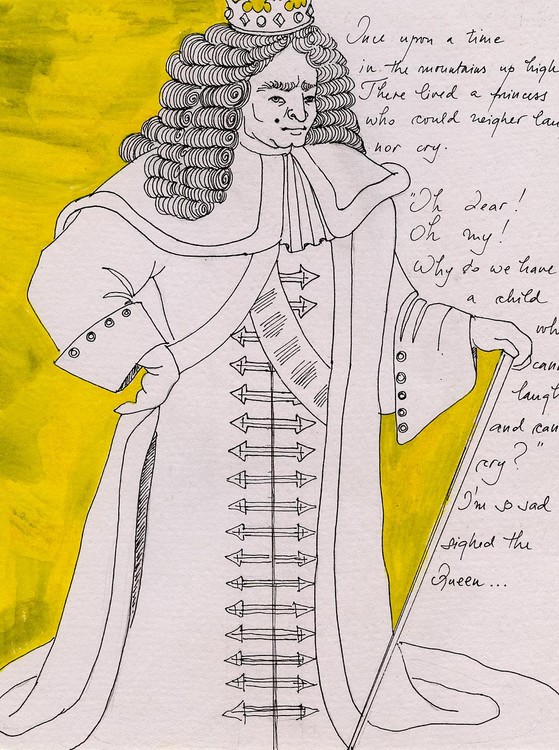 Once upon a time
in the mountains up high
There lived a princess
who could neigher lau
nor cry.
"Oh dear!
Oh my!
Why do we have
a child
wh
cann
laugh
and can
cry?"
I'm so sad
sighed the
Queen...